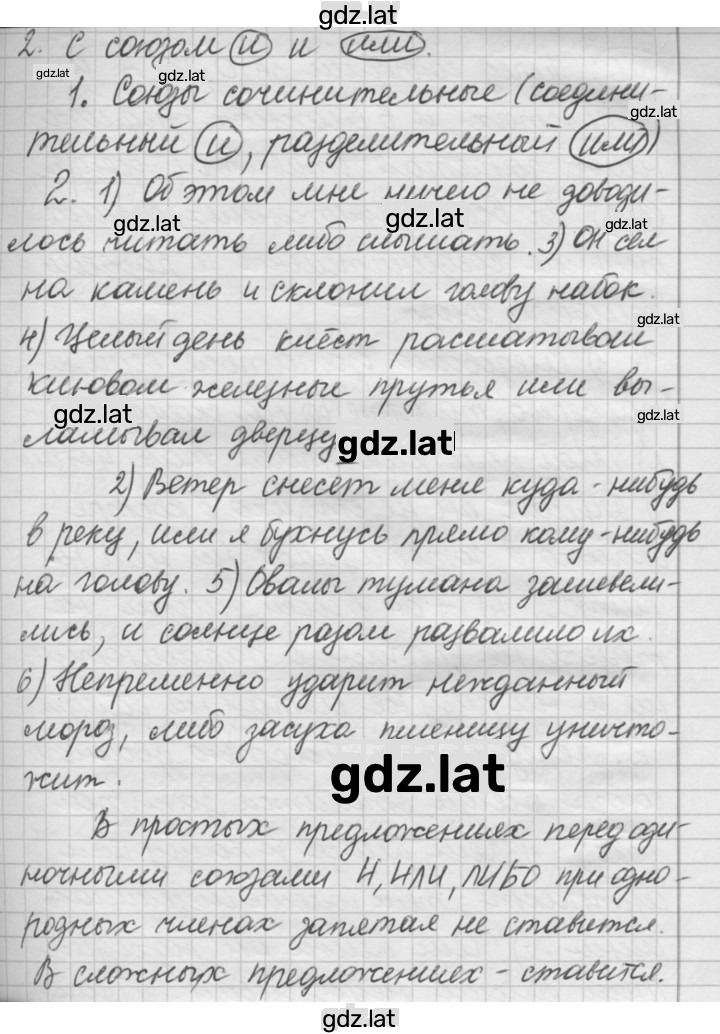 gdz.lat
2. С союзом и и или.
gdz.lat
gdz.lat
1. Союзы сочинительные (соедини-
gdz.lat
тельный и, разделительный или)
2. 1) Об этом мне ничего не доводи-
gdz.lat
gdz.lat
gdz.lat
лось читать либо слышать. 3) Он сел
на камень и склонил голову набок.
gdz.lat
4) Целый день клёст расшатывал
клювом железные прутья или вы-
gdz.lat
gdz.lat
ламывал дверцу
gdz.lat
2) Ветер снесет меня куда-нибудь
в реку, или я бухнусь прямо кому-нибудь
на голову. 5) Овалы тумана зашевели-
лись, и солнце разом развалило их.
6) Непременно ударит нежданный
мороз, либо засуха пшеницу уничто-
жит.
gdz.lat
В простых предложениях перед оди-
ночными союзами И, ИЛИ, ЛИБО при одно-
родных членах запятая не ставится.
В сложных предложениях - ставится.
gdz.lat